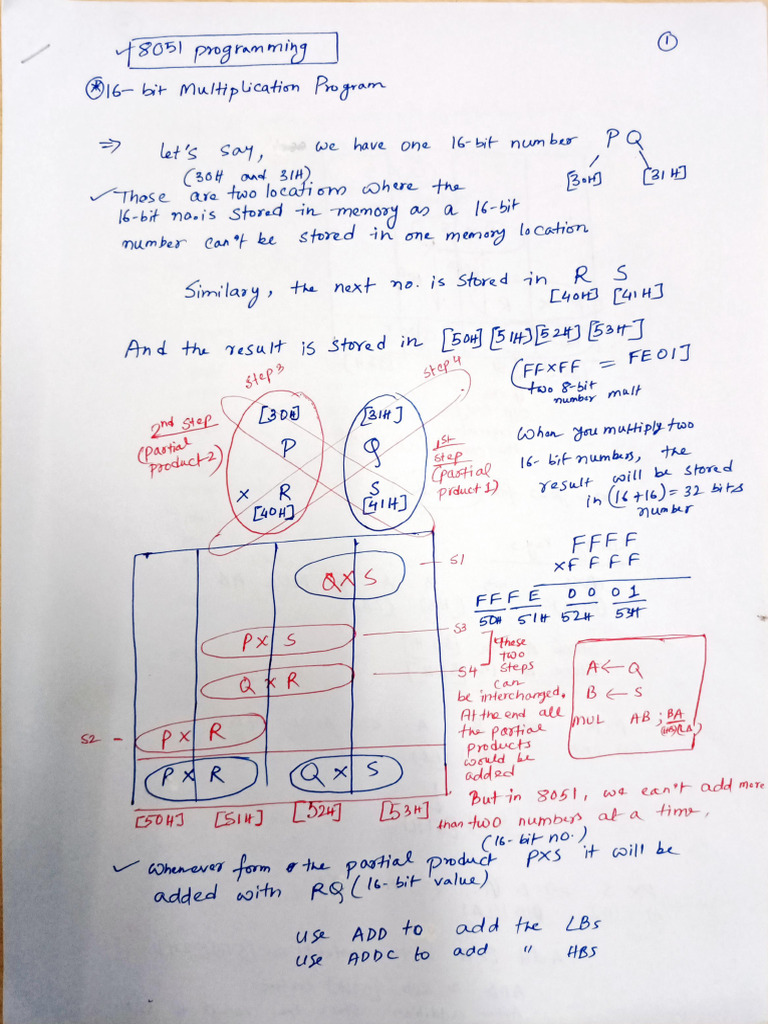 8051 programming
1
16-bit Multiplication Program
⇒ Let's say, we have one 16-bit number P Q
(30H and 31H)
[30H] [31H]
✓ Those are two locations where the
16-bit no. is stored in memory as a 16-bit
number can't be stored in one memory location
Similary, the next no. is stored in R S
[40H] [41H]
And the result is stored in [50H] [51H] [52H] [53H]
(FF×FF = FE01]
two 8-bit
number mult
Step 3
Step 4
2nd Step
(Partial
product 2)
[30H] [31H]
P Q
× R S
[40H] [41H]
1st
step
(partial
prduct 1)
When you multiply two
16-bit numbers, the
result will be stored
in (16+16) = 32 bits
number
FFFF
×FFFF
FF FE 00 01
50H 51H 52H 53H
Q×S
S1
P×S
S3
Q×R
S4
these
two
steps
can
be interchanged.
At the end all
the partial
products
would be
added
A ← Q
B ← S
MUL AB ; BA
(HB)(LB)
S2 - P×R
P×R Q×S
[50H] [51H] [52H] [53H]
But in 8051, we can't add more
than two numbers at a time.
(16-bit no.)
✓ Whenever form the partial product P×S it will be
added with RQ (16-bit value)
use ADD to add the LBs
use ADDC to add " HBS